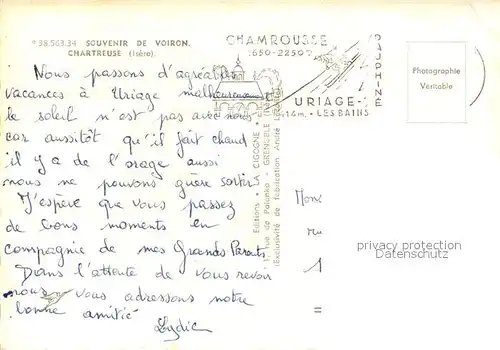 * 38.563.34 SOUVENIR DE VOIRON.
CHARTREUSE (Isère).
CHAMROUSSE
1650-2250m
DAUPHINÉ
URIAGE-
414m.-LES BAINS
Photographie
Véritable
Nous passons d'agréables
vacances à Uriage malheureusement
le soleil n'est pas avec nous
car aussitôt qu'il fait chaud
il y a de l'orage aussi
nous ne pouvons guère sortir
J'espère que vous passez
de bons moments en
compagnie de mes Grands Parents
Dans l'attente de vous revoir
nous vous adressons notre
bonne amitié
Lydie
Editions "LA CIGOGNE"
17, rue de Palanka - GRENOBLE
(Exclusivité de fabrication André
privacy protection
Datenschutz